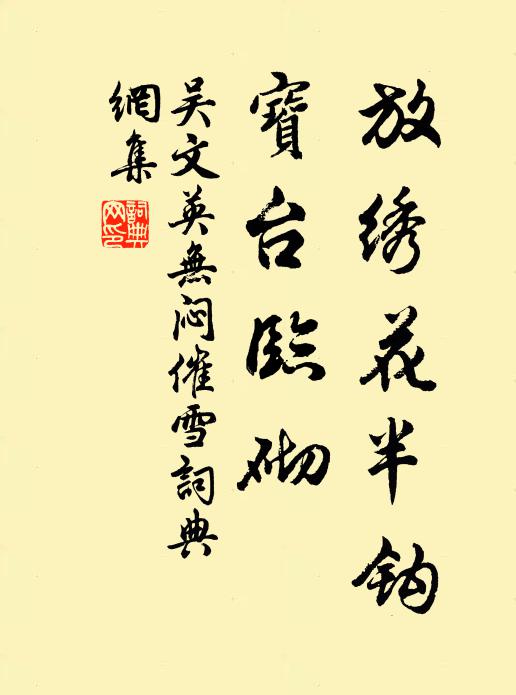 放绣花半钩
寶台臨砌
吴文英無闷催雪詞典
網集
詞典
网印